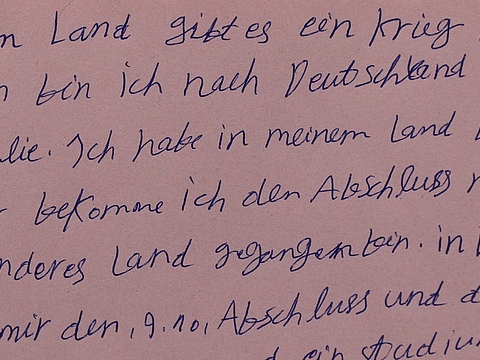 n Land gibt es ein krieg
n bin ich nach Deutschland
lie. Ich habe in meinem Land
r bekomme ich den Abschluss n
nderes Land gegangen bin. in
mir den, 9.10, Abschluss und d
d ein studiu